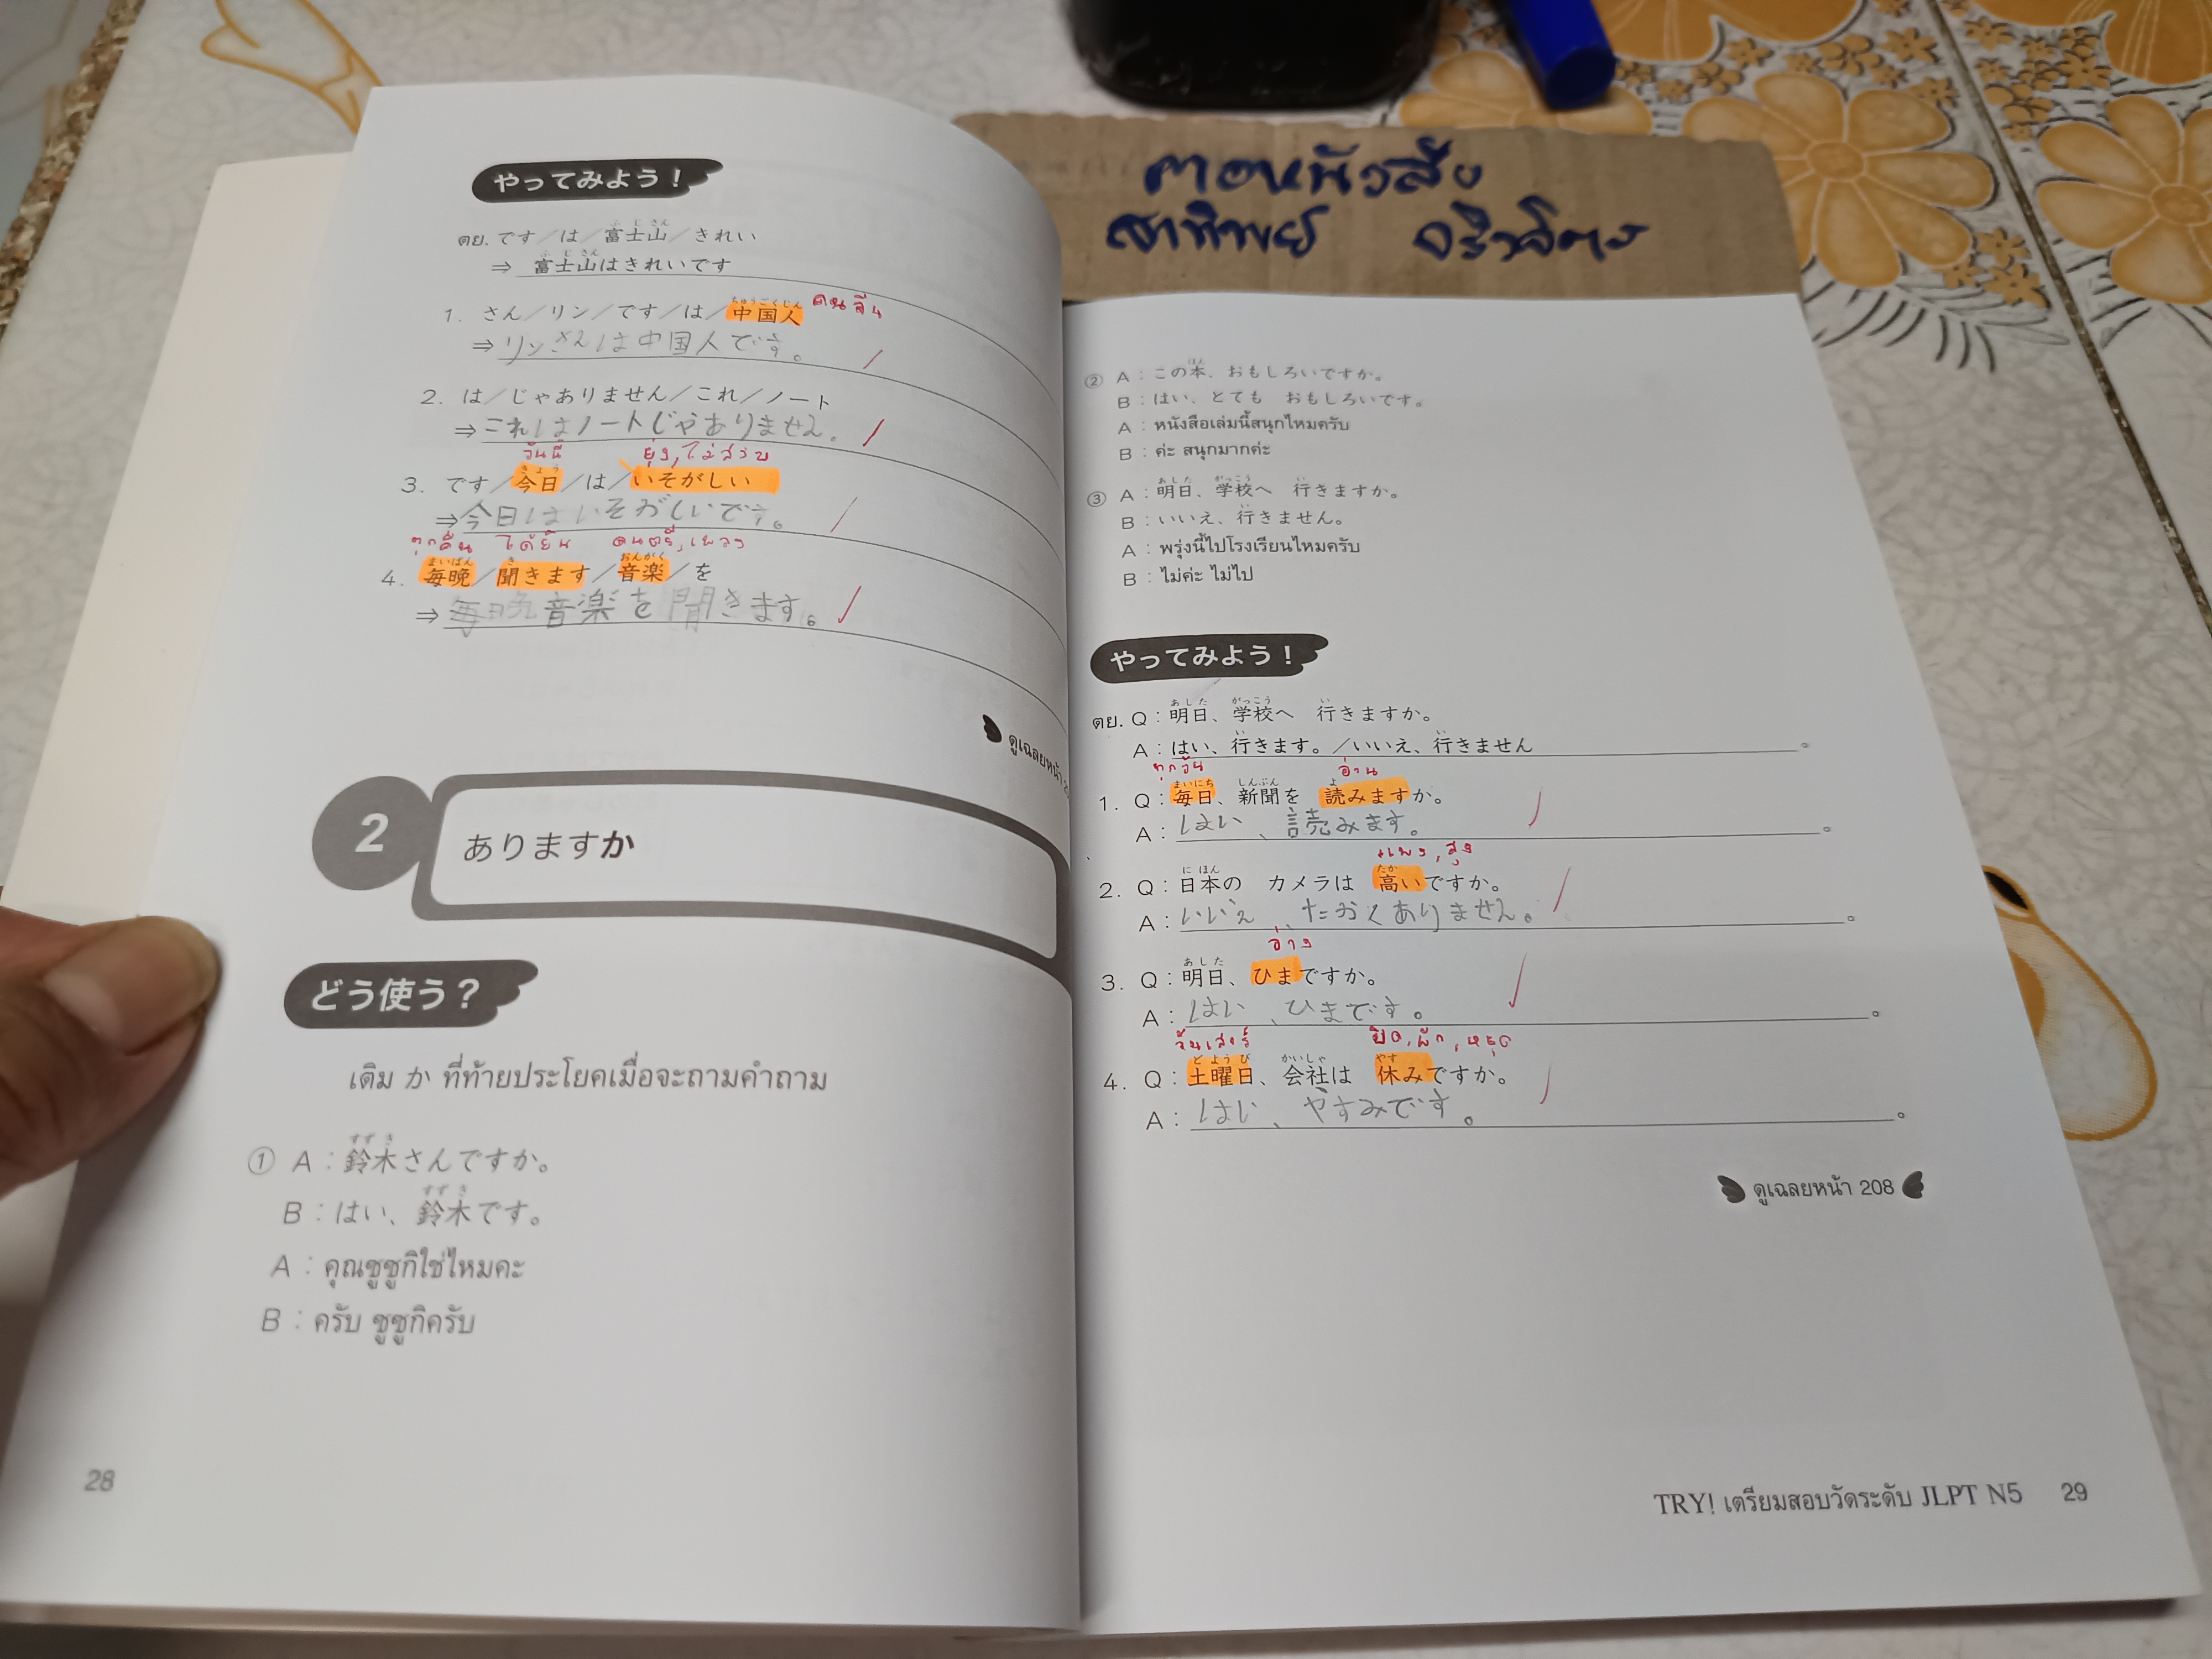 ตอหนังสือ
สาทิพย์
やってみよう！
ตย. です／は／富士山／きれい
ふじさん
⇒ 富士山はきれいです
ふじさん
1. さん／リン／です／は／中国人 คนจีน
ちゅうごくじん
⇒ リンさんは中国人です。
2. は／じゃありません／これ／ノート
⇒ これはノートじゃありません。
วันนี้ ยุ่ง, ไม่สงบ
3. です／今日／は／いそがしい
きょう
⇒ 今日はいそがしいです。
ทุกคืน ได้ยิน ดนตรี, เพลง
4. 毎晩／聞きます／音楽／を
まいばん き おんがく
⇒ 毎晩音楽を聞きます。
ดูเฉลยหน้า
2 ありますか
どう使う？
เติม か ที่ท้ายประโยคเมื่อจะถามคำถาม
① A：鈴木さんですか。
すずき
B：はい、鈴木です。
すずき
A：คุณซูซูกิใช่ไหมคะ
B：ครับ ซูซูกิครับ
28
② A：この本、おもしろいですか。
ほん
B：はい、とても おもしろいです。
A：หนังสือเล่มนี้สนุกไหมครับ
B：ค่ะ สนุกมากค่ะ
③ A：明日、学校へ 行きますか。
あした がっこう い
B：いいえ、行きません。
A：พรุ่งนี้ไปโรงเรียนไหมครับ
B：ไม่ค่ะ ไม่ไป
やってみよう！
ตย. Q：明日、学校へ 行きますか。
あした がっこう い
A：はい、行きます。／いいえ、行きません。
い い
ทุกวัน อ่าน
1. Q：毎日、新聞を 読みますか。
まいにち しんぶん よ
A：はい、読みます。。
แพง, สูง
2. Q：日本の カメラは 高いですか。
にほん たか
A：いいえ、たかくありません。。
ว่าง
3. Q：明日、ひまですか。
あした
A：はい、ひまです。。
วันเสาร์ ปิด, พัก, หยุด
4. Q：土曜日、会社は 休みですか。
どようび かいしゃ やす
A：はい、やすみです。。
ดูเฉลยหน้า 208
TRY! เตรียมสอบวัดระดับ JLPT N5 29